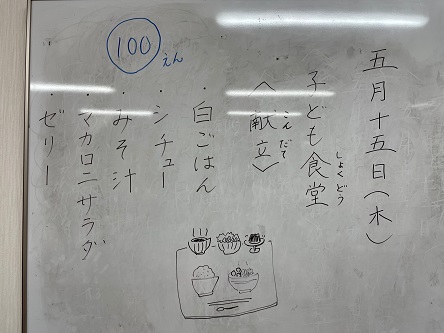 五月十五日(木)
子ども食堂
しょくどう
〈献立〉
こんだて
・白ごはん
・シチュー
・みそ汁
・マカロニサラダ
・ゼリー
100えん